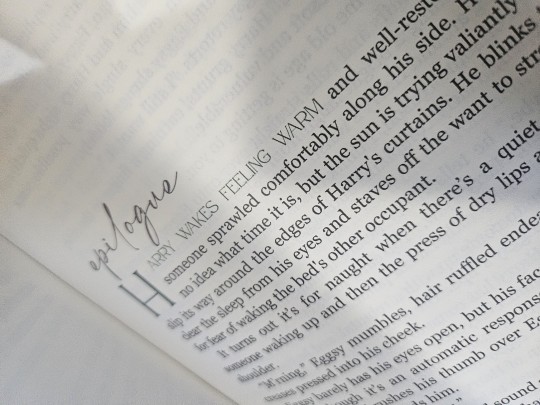 epilogue
HARRY WAKES FEELING WARM and well-rest
someone sprawled comfortably along his side. H
no idea what time it is, but the sun is trying valiantly
slip its way around the edges of Harry's curtains. He blinks
clear the sleep from his eyes and staves off the want to str
for fear of waking the bed's other occupant.
It turns out it's for naught when there's a quiet
someone waking up and then the press of dry lips a
shoulder.
"M'rning," Eggsy mumbles, hair ruffled endea
creases pressed into his cheek.
Eggsy barely has his eyes open, but his fac
though it's an automatic response
rushes his thumb over Eg
ds him.
sound